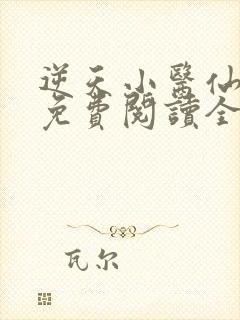 逆天小醫仙
免費閱讀全
瓦尔